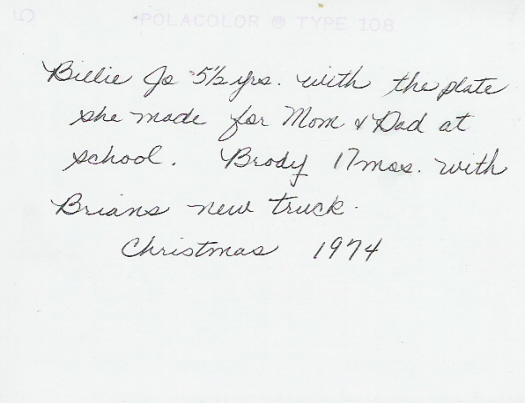 POLACOLOR ® TYPE 108
Billie Jo 5½ yrs. with the plate
she made for Mom & Dad at
school. Brody 17 mos. with
Brians new truck.
Christmas 1974